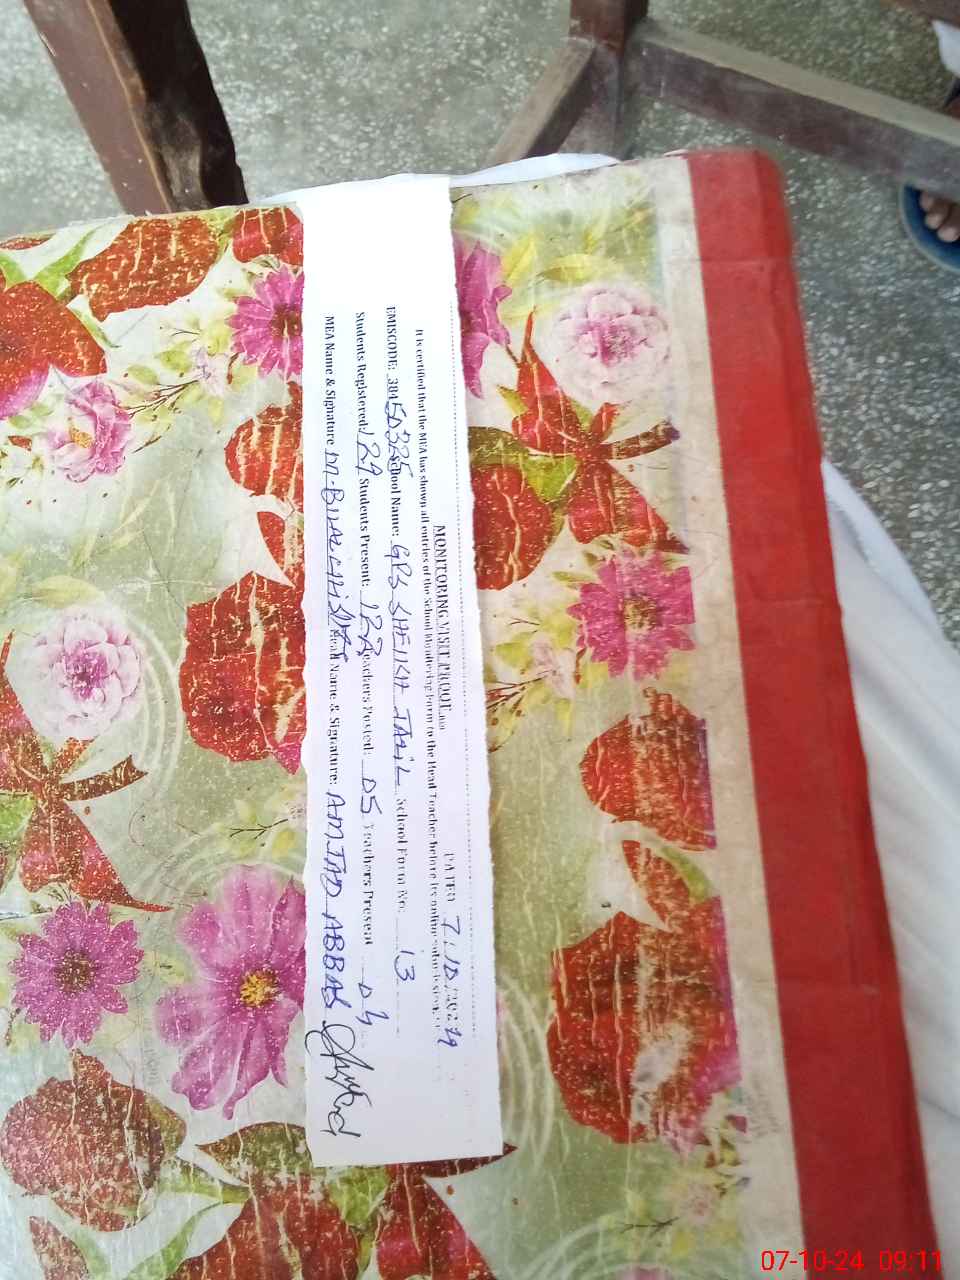 MONITORING VISIT PROOF
DATED 7-10-2024
It is certified that the MEA has shown all entries of the School Monitoring Form to the Head Teacher before its online submission.
EMISCODE: 38450325 School Name: GPS SHEIKH JALIL School Form No: 13
Students Registered: 129 Students Present: 122 Teachers Posted: 05 Teachers Present 04
MEA Name & Signature Head Name & Signature: AMJAD ABBAS
07-10-24 09:11